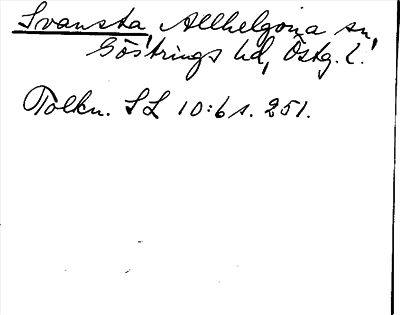 Svansta, Allhelgona sn,
Göstrings hd, Östg. l.
Tolkn. SL 10:6 s. 251.